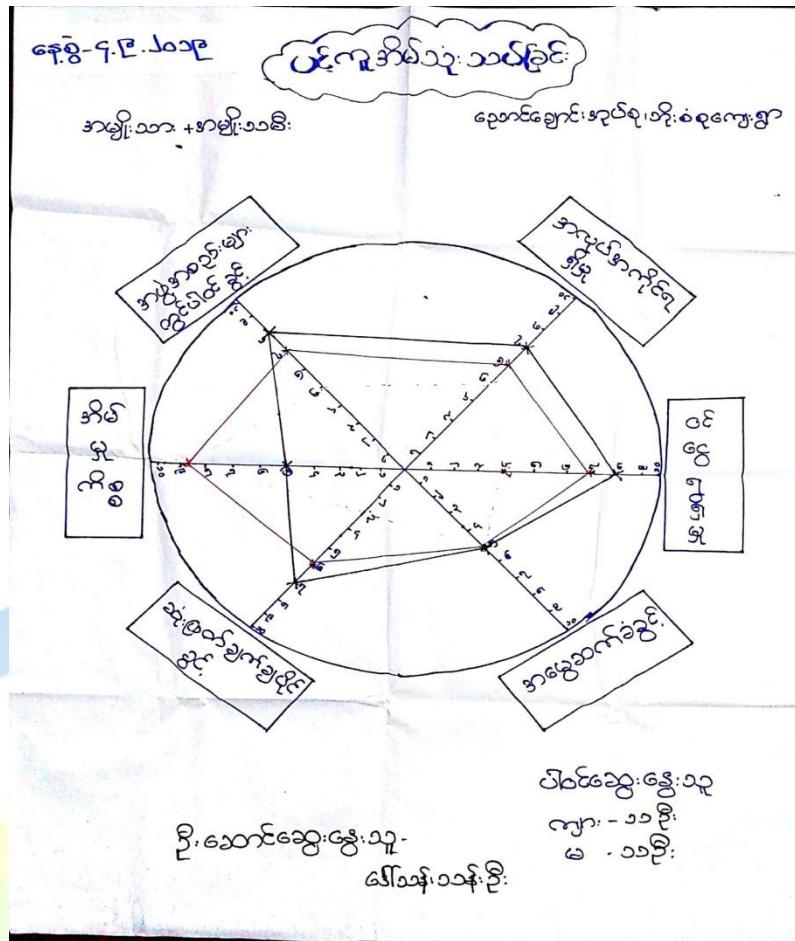 နေ့စွဲ-၄.၉.၂၀၁၉
ပင့်ကူအိမ်သုံးသပ်ခြင်း
အမျိုးသား+အမျိုးသမီး
ညောင်ချောင်းအုပ်စု၊ဘိုးစံစုကျေးရွာ
အဖွဲ့အစည်းများ
တွင်ပါဝင်ခွင့်
အလုပ်အကိုင်ရ
ရှိမှု
အိမ်
မှု
ကိစ္စ
ဝင်
ငွေ
ရရှိမှု
ဆုံးဖြတ်ချက်ချပိုင်
ခွင့်
အမွေဆက်ခံခွင့်
ပါဝင်ဆွေးနွေးသူ
ကျား - ၁၁ဦး
မ - ၁၁ဦး
ဦးဆောင်ဆွေးနွေးသူ-
ဒေါ်သန်းသန်းဦး